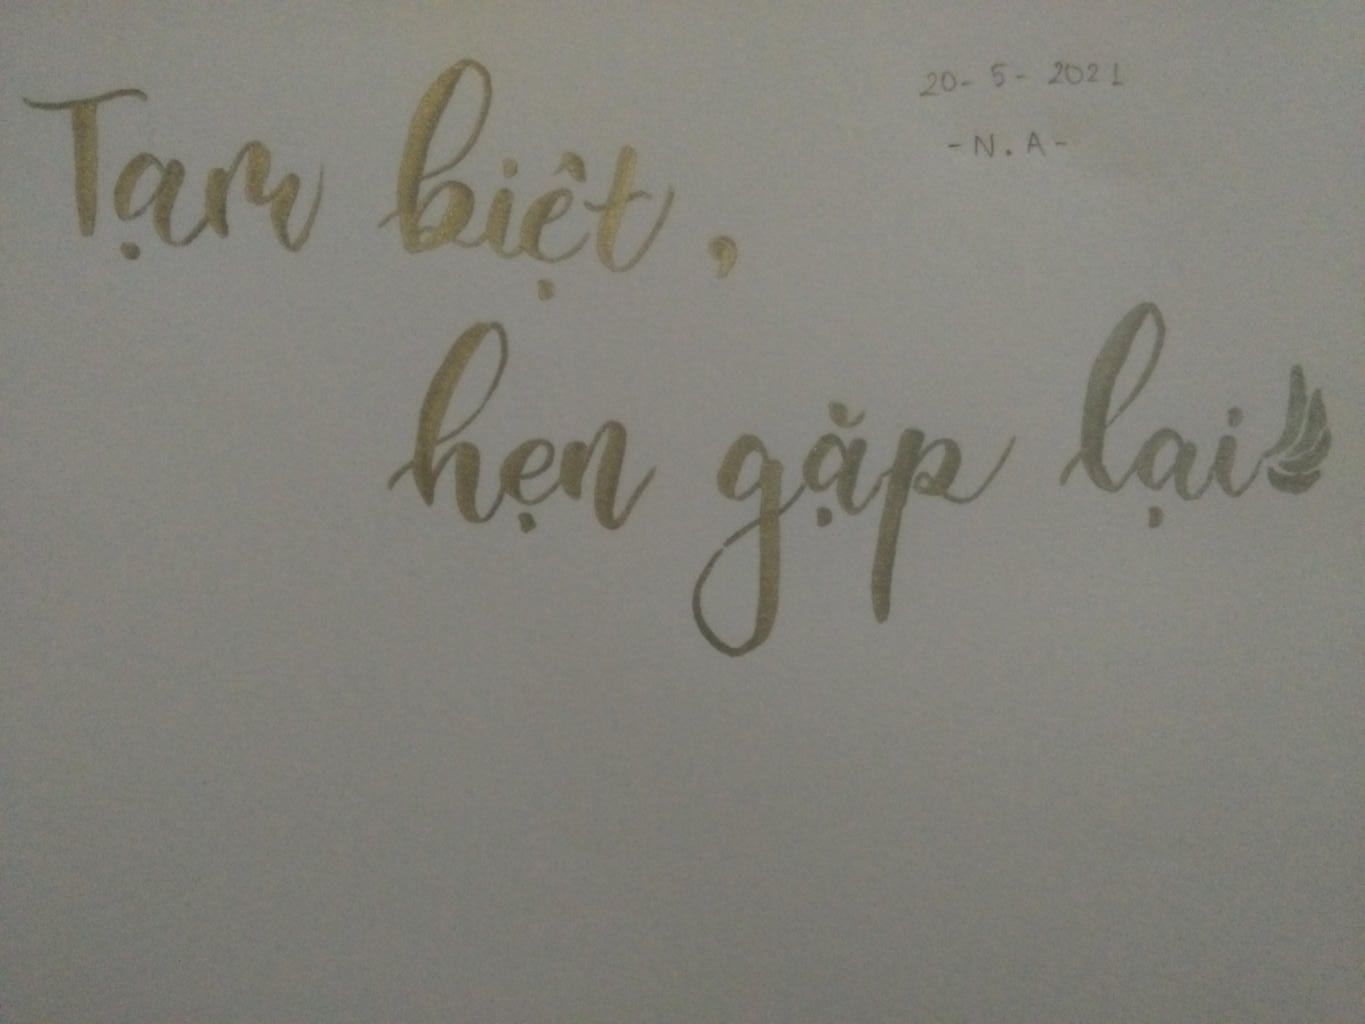 20-5-2021
-N.A-
Tạm biệt,
hẹn gặp lại